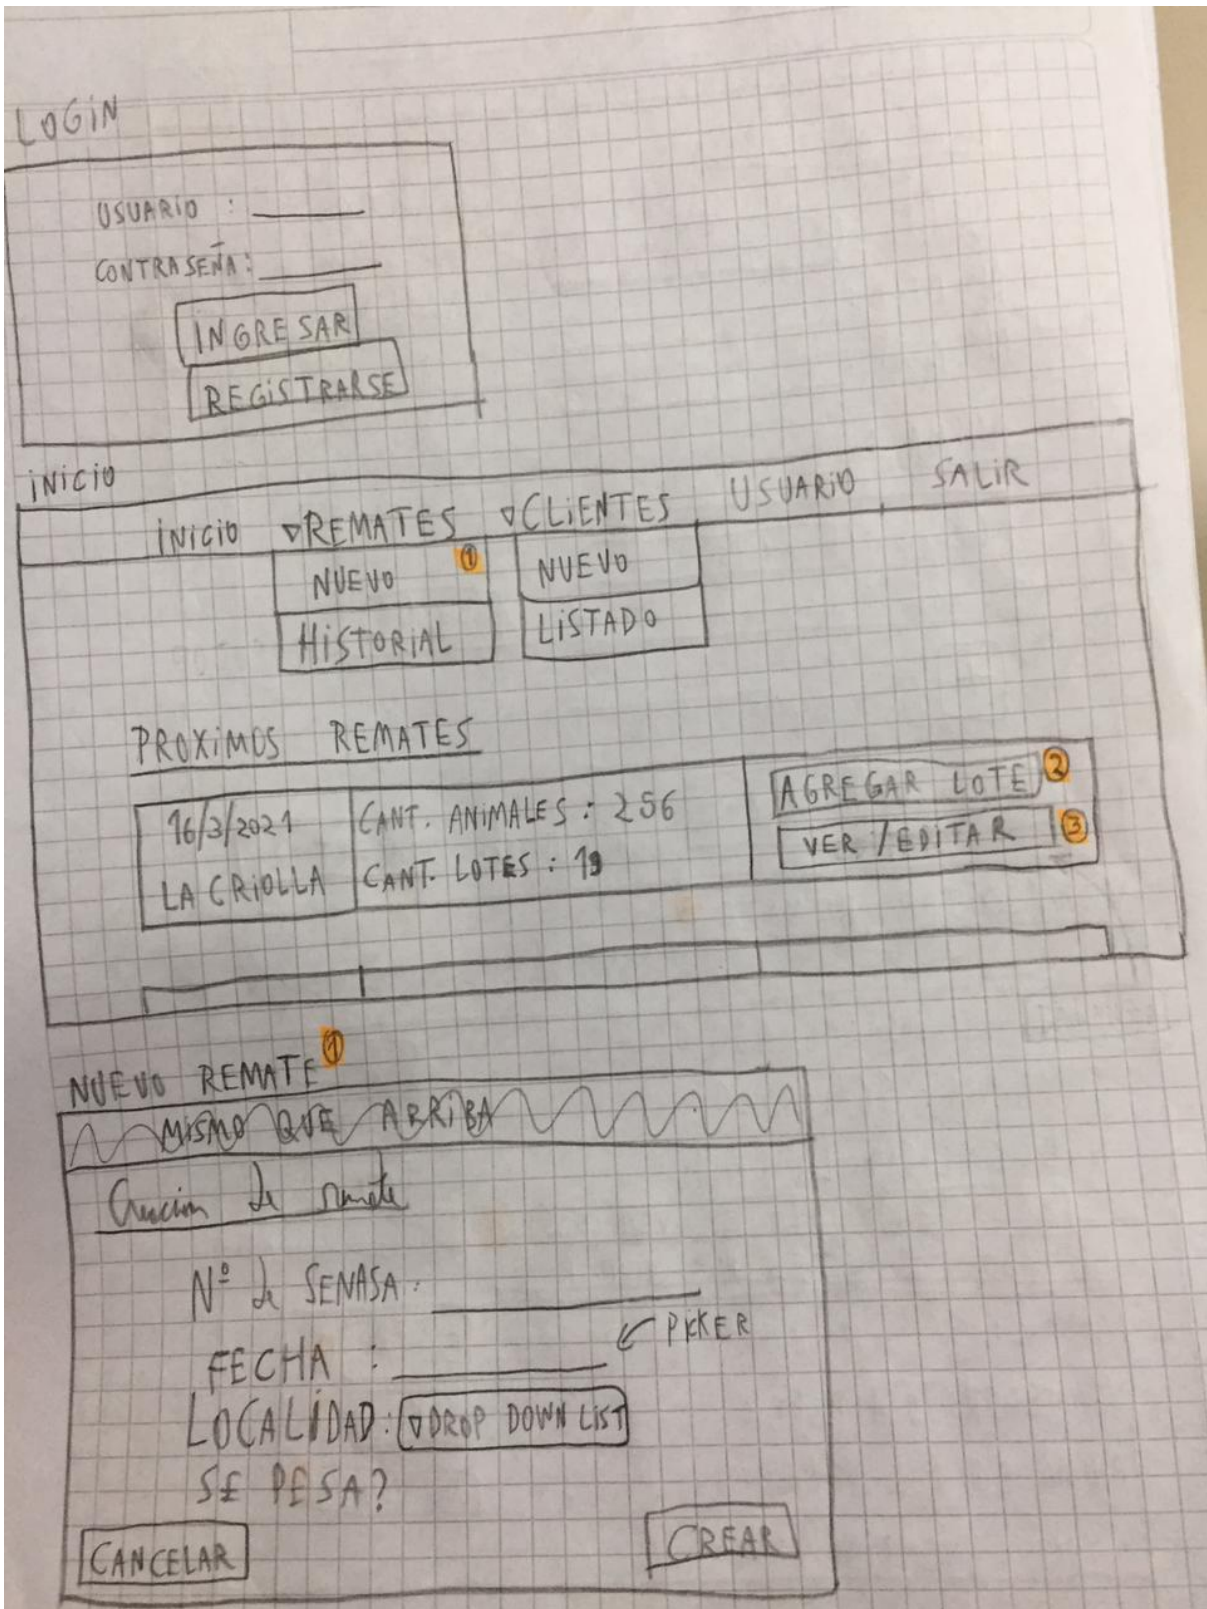 LOGIN
USUARIO :
CONTRASEÑA:
INGRESAR
REGISTRARSE
INICIO
INICIO ▽REMATES ▽CLIENTES USUARIO SALIR
NUEVO ① NUEVO
HISTORIAL LISTADO
PROXIMOS REMATES
16/3/2021 CANT. ANIMALES : 256 AGREGAR LOTE ②
LA CRIOLLA CANT. LOTES : 19 VER/EDITAR ③
NUEVO REMATE ①
MISMO QUE ARRIBA
Creación de remate
Nº de SENASA:
FECHA : ↙ PICKER
LOCALIDAD: ▽DROP DOWN LIST
SE PESA?
CANCELAR CREAR